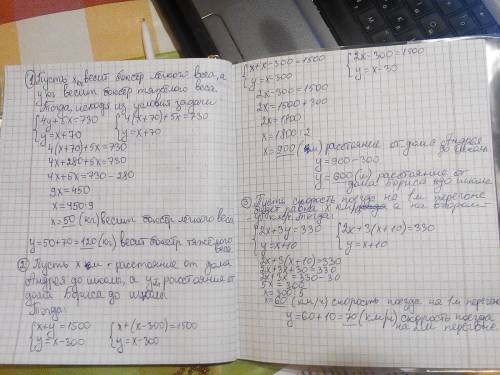 ① Пусть x кг весит боксёр лёгкого веса, а
y кг весит боксёр тяжёлого веса.
Тогда, исходя из условия задачи
{4y+5x=730 {4(x+70)+5x=730
{y=x+70 {y=x+70
4(x+70)+5x=730
4x+280+5x=730
4x+5x=730-280
9x=450
x=450:9
x=50 (кг) весит боксёр лёгкого веса.
y=50+70=120 (кг) весит боксёр тяжёлого
веса.
② Пусть x м - расстояние от дома
Андрея до школы, а y - расстояние от
дома Бориса до школы.
Тогда:
{x+y=1500 {x+(x-300)=1500
{y=x-300 {y=x-300
{x+x-300=1500 {2x-300=1500
{y=x-300 {y=x-30
2x-300=1500
2x=1500+300
2x=1800
x=1800:2
x=900 (м) расстояние от дома Андрея
до школы
y=900-300
y=600 (м) расстояние от
дома Бориса до школы.
③ Пусть скорость поезда на 1м перегоне
будет равна x км/ч, а на втором -
y км/ч. Тогда:
{2x+3y=330 {2x+3(x+10)=330
{y=x+10 {y=x+10
2x+3(x+10)=330
2x+3x+30=330
2x+3x=330-30
5x=300
x=300:5
x=60 (км/ч) скорость поезда на 1м перегоне
y=60+10=70 (км/ч) скорость поезда
на 2м перегоне.